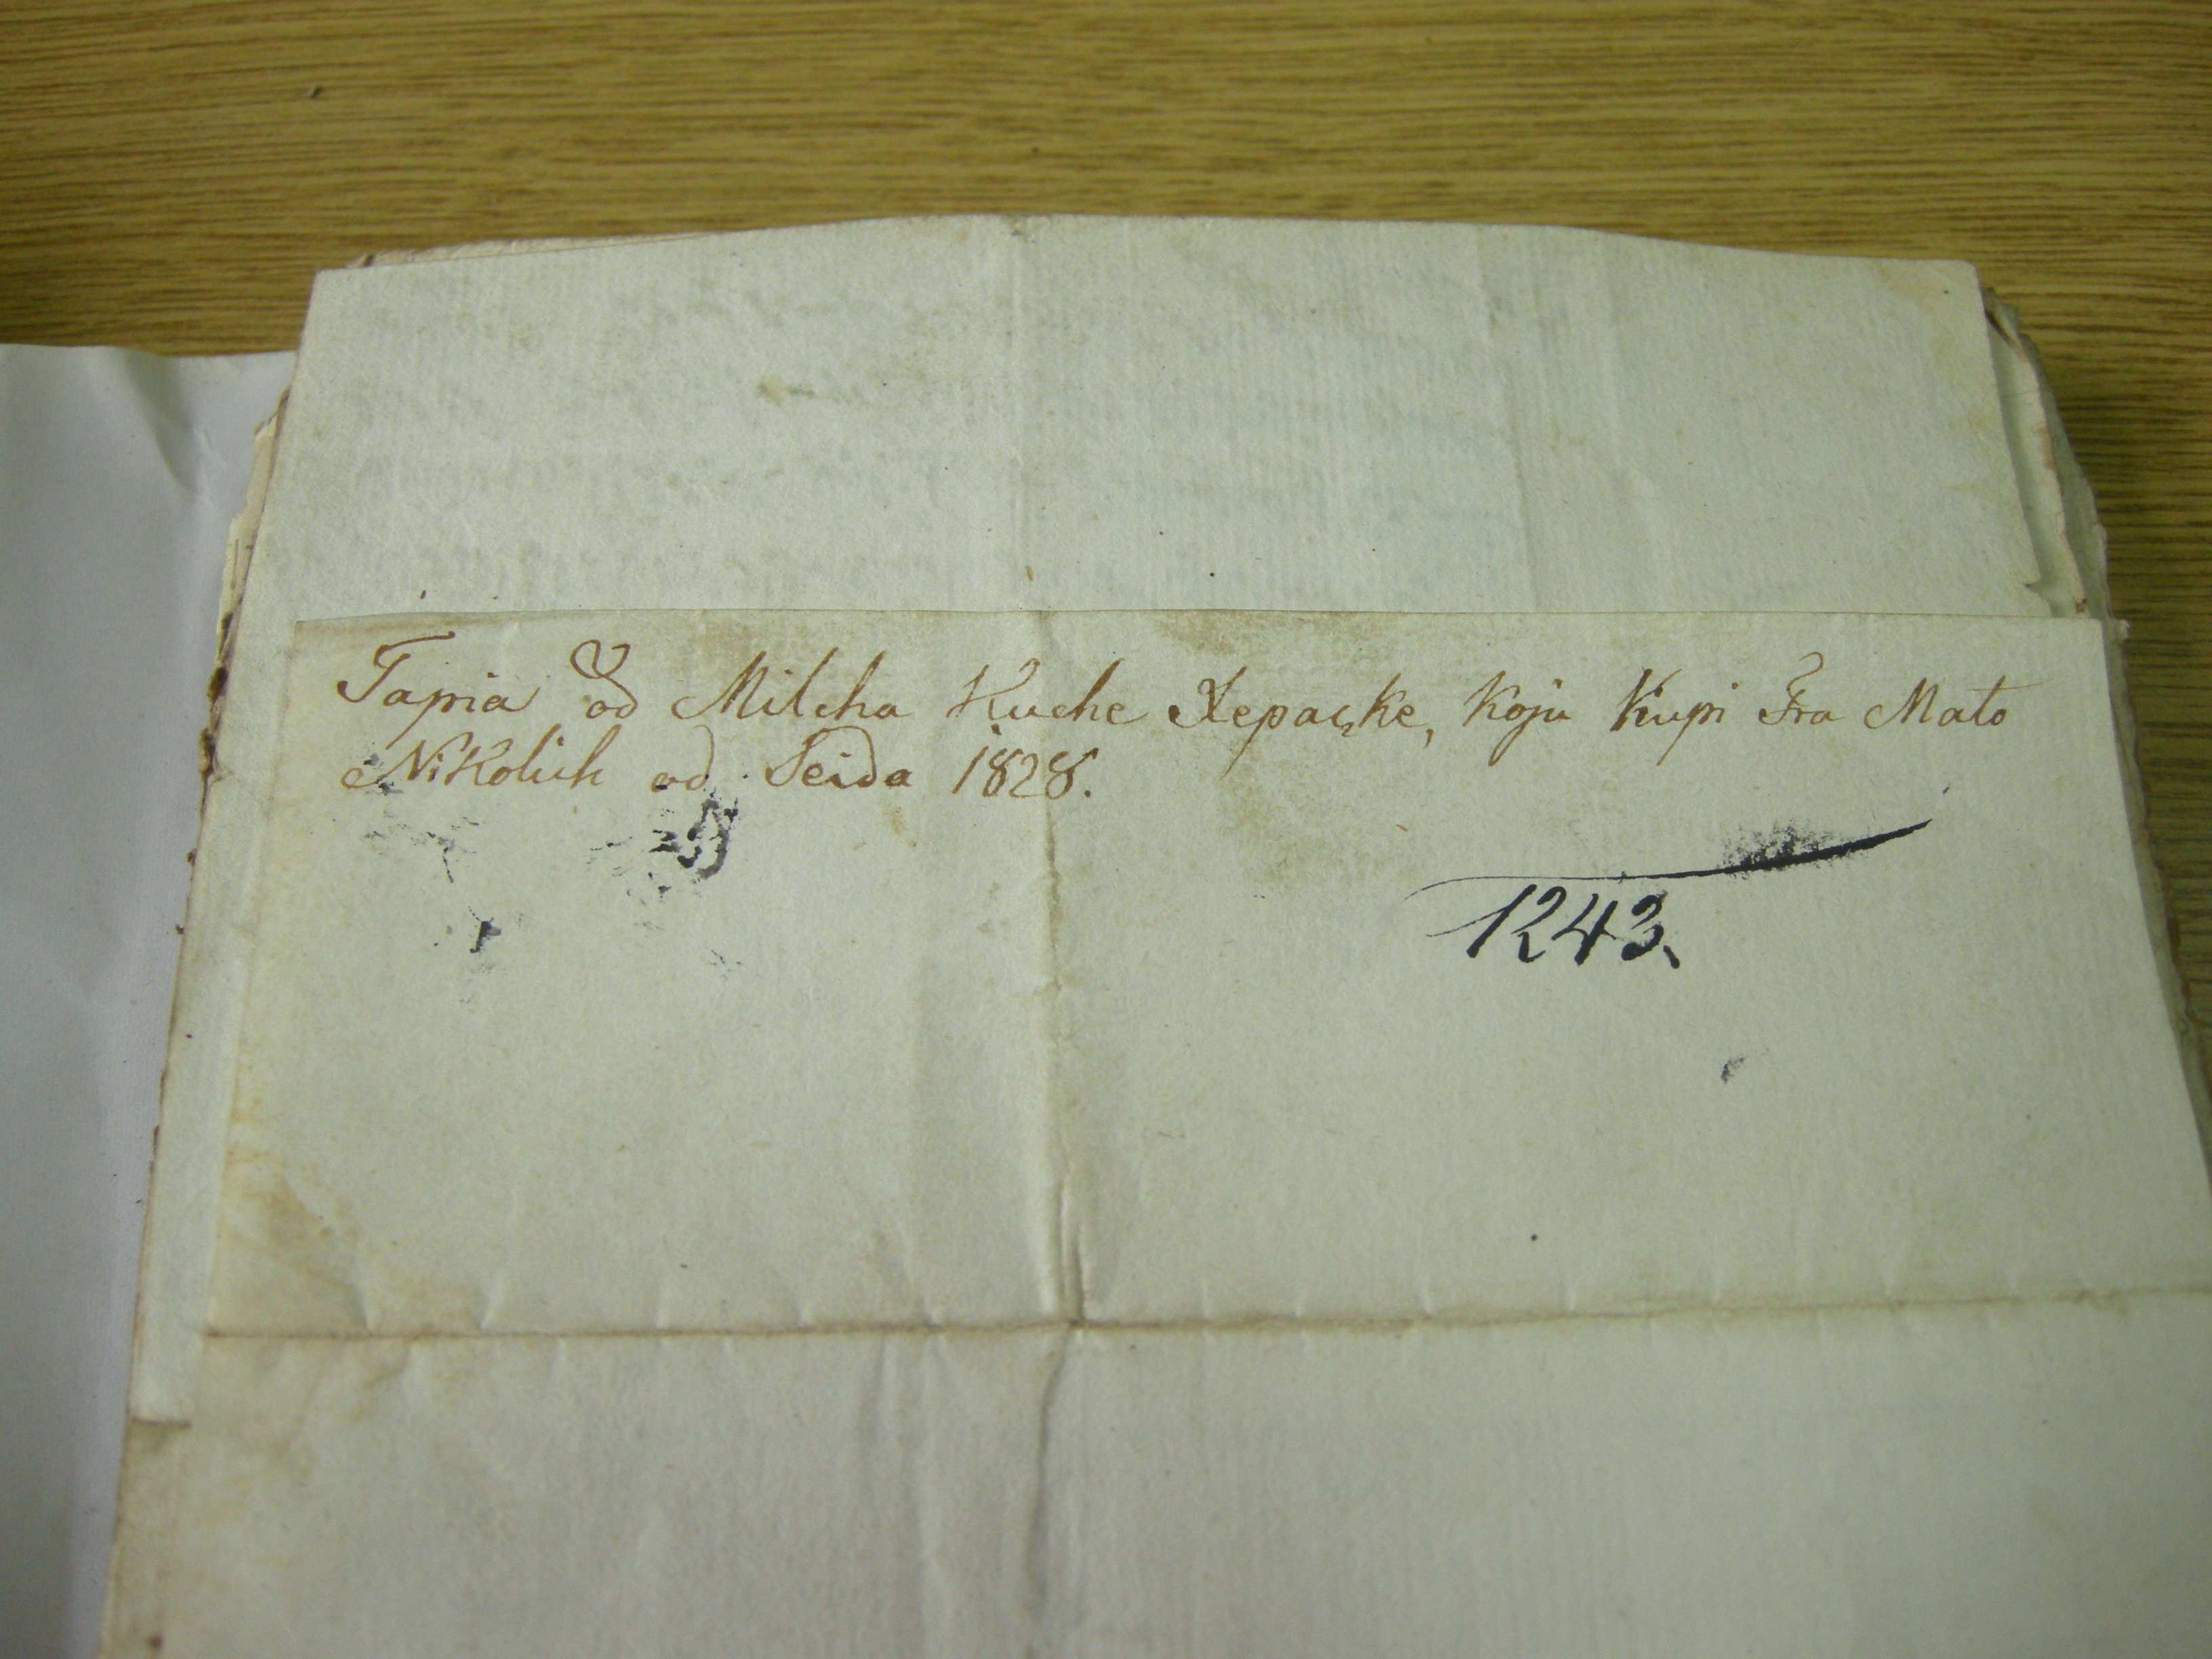 Tapia od Milcha Kuche Xepaçke, koju Kupi Fra Mato
Nikolich od Seida 1828.
1243.